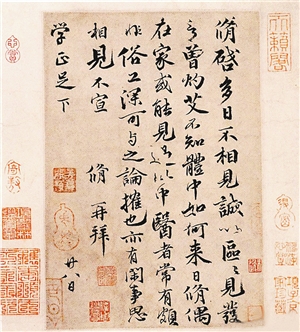 脩啓多日不相見誠以區區見發
言曾灼艾不知體中如何來日脩偶
在家或能見過此中醫者常有頗
非俗工深可與之論榷也亦有閑事思
相見不宣 脩再拜
學正足下 廿八日